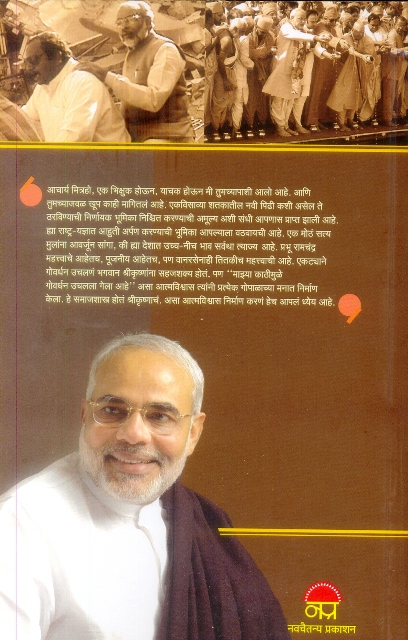 आचार्य मित्रहो, एक भिक्षुक होऊन, याचक होऊन मी तुमच्यापाशी आलो आहे. आणि
तुमच्याजवळ खूप काही मागितलं आहे. एकविसाव्या शतकातील नवी पिढी कशी असेल ते
ठरविण्याची निर्णायक भूमिका निश्चित करण्याची अमूल्य अशी संधी आपणास प्राप्त झाली आहे.
ह्या राष्ट्र-यज्ञात आहुती अर्पण करण्याची भूमिका आपल्याला वठवायची आहे. एक मोठं सत्य
मुलांना आवर्जून सांगा, की ह्या देशात उच्च-नीच भाव सर्वथा त्याज्य आहे. प्रभू रामचंद्र
महत्त्वाचे आहेतच, पूजनीय आहेतच, पण वानरसेनाही तितकीच महत्त्वाची आहे. एकट्याने
गोवर्धन उचलणं भगवान श्रीकृष्णांना सहजशक्य होतं. पण ‘‘माझ्या काठीमुळे
गोवर्धन उचलला गेला आहे’’ असा आत्मविश्वास त्यांनी प्रत्येक गोपाळाच्या मनात निर्माण
केला. हे समाजशास्त्र होतं श्रीकृष्णाचं. असा आत्मविश्वास निर्माण करणं हेच आपलं ध्येय आहे.
नप्र
नवचैतन्य प्रकाशन